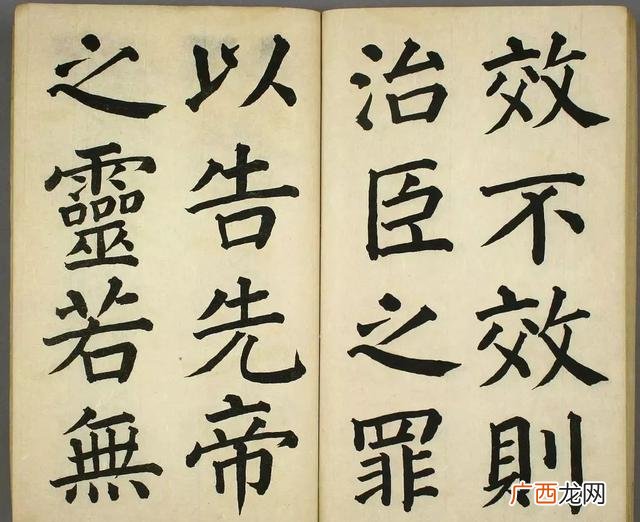 效不效則
治臣之罪
以告先帝
之靈若無
广西龙网